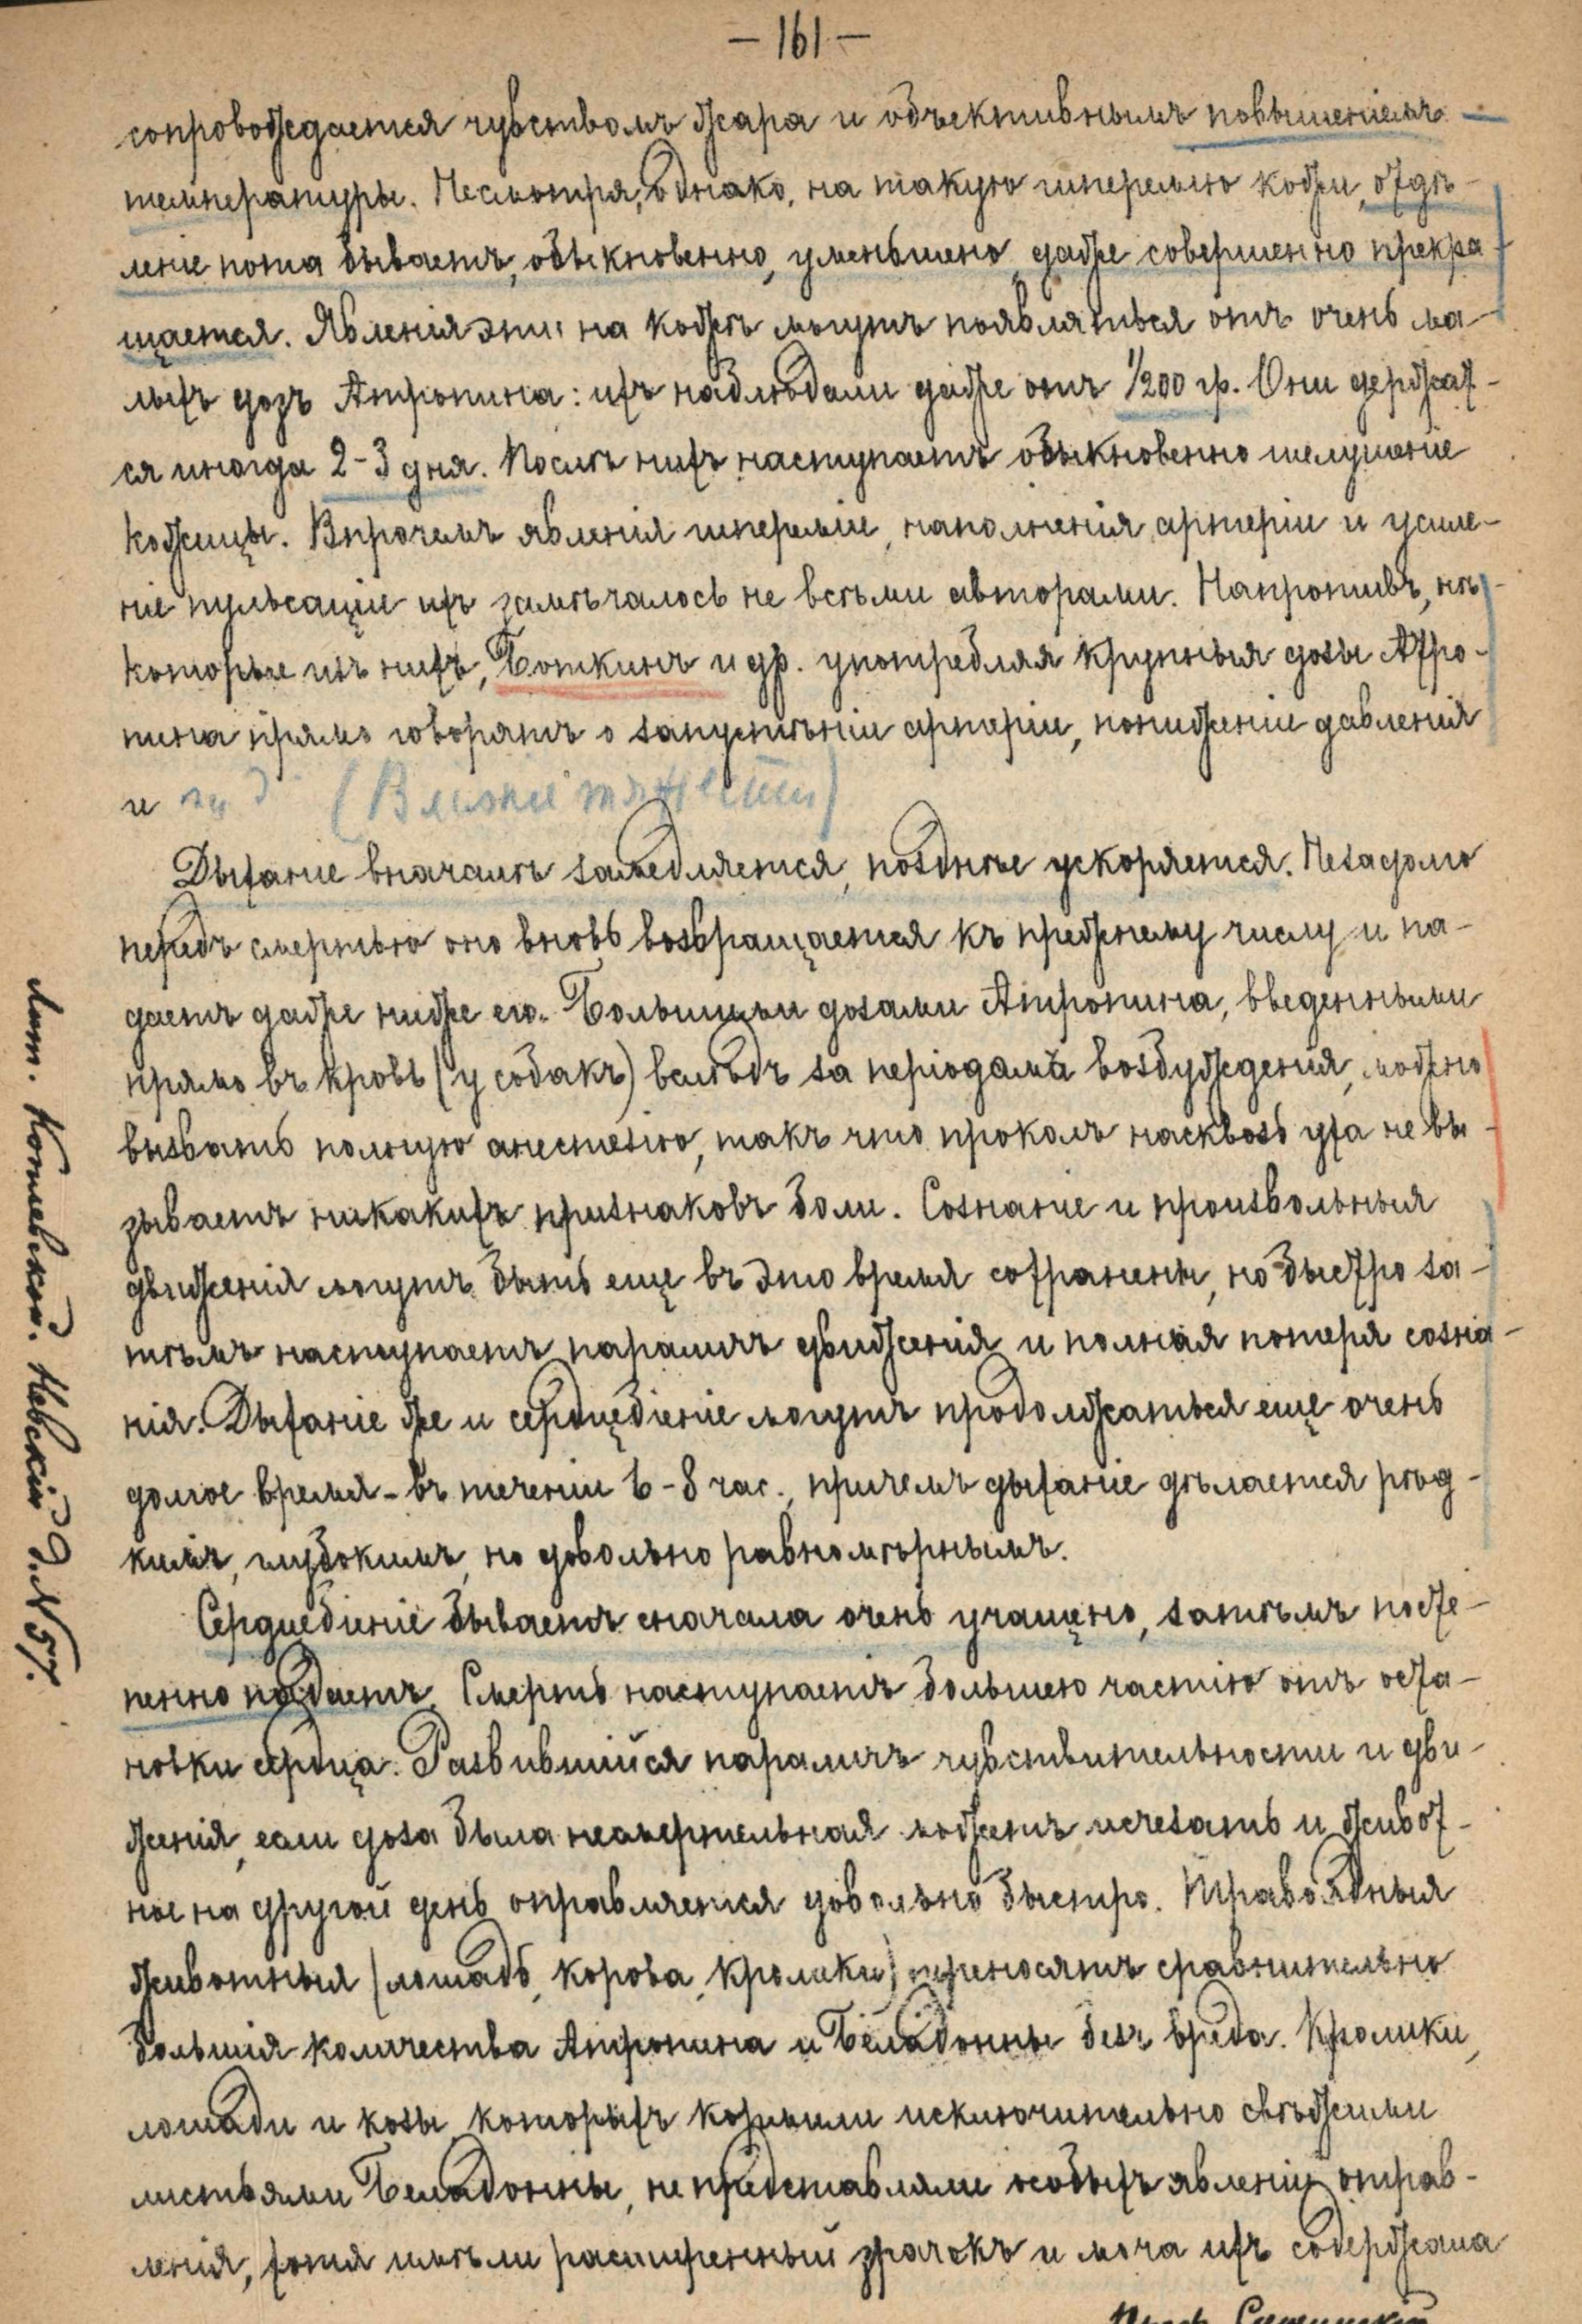 — 161 —
сопровождается чувствомъ жара и объективнымъ повышеніемъ
температуры. Несмотря, однако, на такую гиперемію кожи, отдѣ-
леніе пота бываетъ, обыкновенно, уменьшено, даже совершенно прекра-
щается. Явленія эти на кожѣ могутъ появляться отъ очень ма-
лыхъ дозъ Атропина: ихъ наблюдали даже отъ 1/200 гр. Они держат-
ся иногда 2-3 дня. Послѣ нихъ наступаетъ обыкновенно шелушеніе
кожицы. Впрочемъ явленія гипереміи, наполненія артеріи и усиле-
ніе пульсаціи ихъ замѣчалось не всѣми авторами. Напротивъ, нѣ-
которые изъ нихъ, Боткинъ и др. употребляя крупныя дозы Атро-
пина прямо говорятъ о запустѣніи артеріи, пониженіе давленія
и
Дыханіе вначалѣ замедляется, позднѣе ускоряется. Незадолго
передъ смертью оно вновь возвращается къ прежнему числу и па-
даетъ даже ниже его. Большими дозами Атропина, введенными
прямо въ кровь (у собакъ) вслѣдъ за періодомъ возбужденія, можно
вызвать полную анестезію, такъ что проколъ насквозь уха не вы-
зываетъ никакихъ признаковъ боли. Сознаніе и произвольныя
движенія могутъ быть еще въ это время сохранены, но быстро за-
тѣмъ наступаетъ параличъ движенія и полная потеря созна-
нія. Дыханіе же и сердцебіеніе могутъ продолжаться еще очень
долгое время – въ теченіи 6-8 час., причемъ дыханіе дѣлается рѣд-
кимъ, глубокимъ, но довольно равномѣрнымъ.
Сердцебіеніе бываетъ сначала очень учащено, затѣмъ посте-
пенно падаетъ. Смерть наступаетъ большею частію отъ оста-
новки сердца. Развившійся параличъ чувствительности и дви-
женія, если доза была несмертельная можетъ исчезать и живот-
ное на другой день оправляется довольно быстро. Травоядныя
животныя (лошадь, корова, кролики) переносятъ сравнительно
большія количества Атропина и Беладонны безъ вреда. Кролики,
лошади и козы, которыхъ кормили исключительно свѣжими
листьями Беладонны, не представляли особыхъ явленій отрав-
ленія, хотя имѣли расширенный зрачокъ и моча ихъ содержала
Лит. Котлевской. Невскій д. № 57.